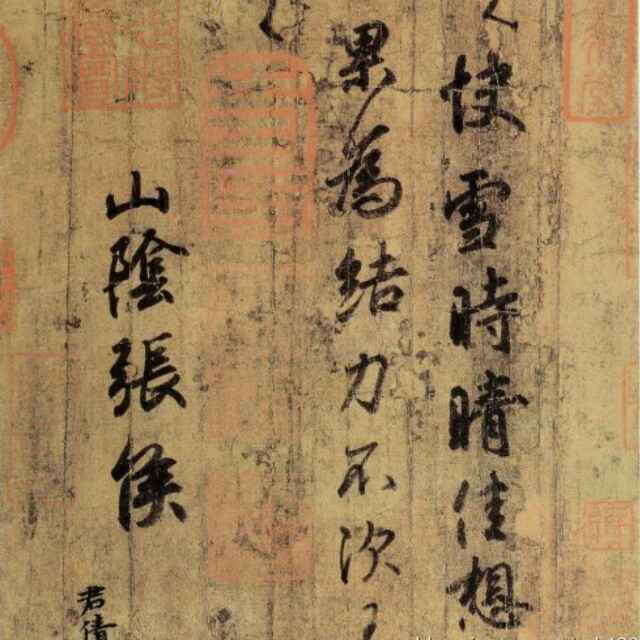 快雪時晴佳想
果為結力不次
山陰張侯
君倩